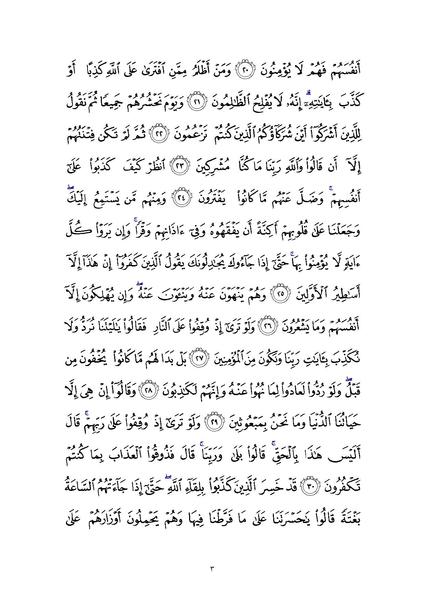 أَنفُسَهُمْ فَهُمْ لَا يُؤْمِنُونَ ٢٠ وَمَنْ أَظْلَمُ مِمَّنِ ٱفْتَرَىٰ عَلَى ٱللَّهِ كَذِبًا أَوْ
كَذَّبَ بِـَٔايَٰتِهِۦٓ إِنَّهُۥ لَا يُفْلِحُ ٱلظَّٰلِمُونَ ٢١ وَيَوْمَ نَحْشُرُهُمْ جَمِيعًا ثُمَّ نَقُولُ
لِلَّذِينَ أَشْرَكُوٓا۟ أَيْنَ شُرَكَآؤُكُمُ ٱلَّذِينَ كُنتُمْ تَزْعُمُونَ ٢٢ ثُمَّ لَمْ تَكُن فِتْنَتُهُمْ
إِلَّآ أَن قَالُوا۟ وَٱللَّهِ رَبِّنَا مَا كُنَّا مُشْرِكِينَ ٢٣ ٱنظُرْ كَيْفَ كَذَبُوا۟ عَلَىٰٓ
أَنفُسِهِمْ ۚ وَضَلَّ عَنْهُم مَّا كَانُوا۟ يَفْتَرُونَ ٢٤ وَمِنْهُم مَّن يَسْتَمِعُ إِلَيْكَ ۖ
وَجَعَلْنَا عَلَىٰ قُلُوبِهِمْ أَكِنَّةً أَن يَفْقَهُوهُ وَفِىٓ ءَاذَانِهِمْ وَقْرًا ۚ وَإِن يَرَوْا۟ كُلَّ
ءَايَةٍ لَّا يُؤْمِنُوا۟ بِهَا ۚ حَتَّىٰٓ إِذَا جَآءُوكَ يُجَٰدِلُونَكَ يَقُولُ ٱلَّذِينَ كَفَرُوٓا۟ إِنْ هَٰذَآ إِلَّآ
أَسَٰطِيرُ ٱلْأَوَّلِينَ ٢٥ وَهُمْ يَنْهَوْنَ عَنْهُ وَيَنْـَٔوْنَ عَنْهُ ۖ وَإِن يُهْلِكُونَ إِلَّآ
أَنفُسَهُمْ وَمَا يَشْعُرُونَ ٢٦ وَلَوْ تَرَىٰٓ إِذْ وُقِفُوا۟ عَلَى ٱلنَّارِ فَقَالُوا۟ يَٰلَيْتَنَا نُرَدُّ وَلَا
نُكَذِّبَ بِـَٔايَٰتِ رَبِّنَا وَنَكُونَ مِنَ ٱلْمُؤْمِنِينَ ٢٧ بَلْ بَدَا لَهُم مَّا كَانُوا۟ يُخْفُونَ مِن
قَبْلُ ۖ وَلَوْ رُدُّوا۟ لَعَادُوا۟ لِمَا نُهُوا۟ عَنْهُ وَإِنَّهُمْ لَكَٰذِبُونَ ٢٨ وَقَالُوٓا۟ إِنْ هِىَ إِلَّا
حَيَاتُنَا ٱلدُّنْيَا وَمَا نَحْنُ بِمَبْعُوثِينَ ٢٩ وَلَوْ تَرَىٰٓ إِذْ وُقِفُوا۟ عَلَىٰ رَبِّهِمْ ۚ قَالَ
أَلَيْسَ هَٰذَا بِٱلْحَقِّ ۚ قَالُوا۟ بَلَىٰ وَرَبِّنَا ۚ قَالَ فَذُوقُوا۟ ٱلْعَذَابَ بِمَا كُنتُمْ
تَكْفُرُونَ ٣٠ قَدْ خَسِرَ ٱلَّذِينَ كَذَّبُوا۟ بِلِقَآءِ ٱللَّهِ ۖ حَتَّىٰٓ إِذَا جَآءَتْهُمُ ٱلسَّاعَةُ
بَغْتَةً قَالُوا۟ يَٰحَسْرَتَنَا عَلَىٰ مَا فَرَّطْنَا فِيهَا وَهُمْ يَحْمِلُونَ أَوْزَارَهُمْ عَلَىٰ
٣